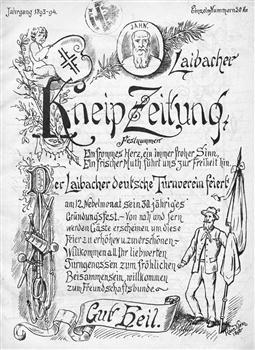 Jahrgang 1893-94.
Einzeln Nummern 20 Kr.
JAHN.
Laibacher
Kneip Zeitung.
Festnummer
Ein frommes Herz, ein immer froher Sinn,
Ein frischer Muth führt uns zur Freiheit hin.
Der Laibacher deutsche Turnverein feiert
am 12. Nebelmonat sein 30-jähriges
Gründungsfest. - Von nah und fern
werden Gäste erscheinen um diese
Feier zu erhöhen u. zu verschönen -
Willkommen all Ihr liebwerten
Turngenossen zum fröhlichen
Beisammensein, willkommen
zum Freundschaftsbunde
Gut Heil.